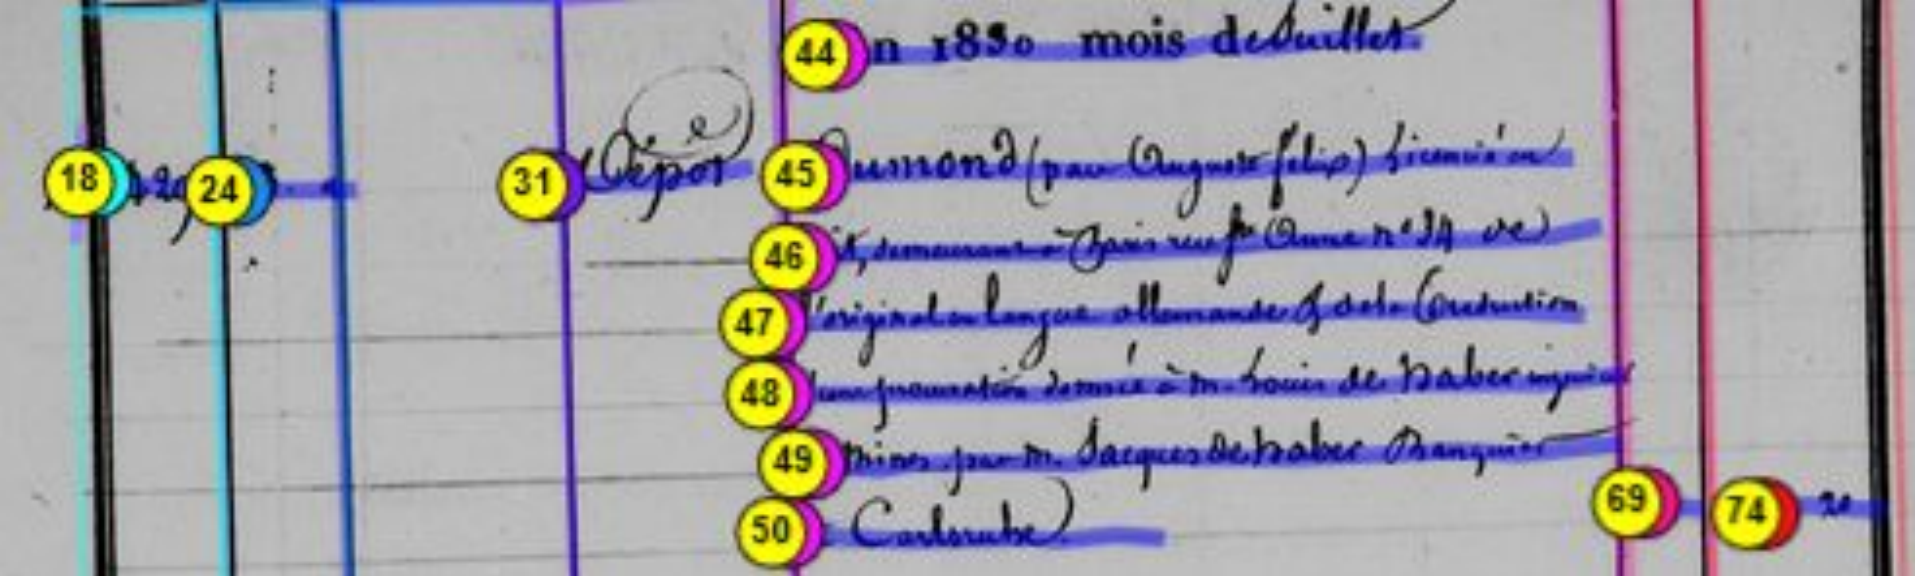 44 n 1830 mois de Juillet.
18 29 24 31 Dépot 45 umond (par Auguste felix) Licencié en
46 t, demeurant à Paris rue Ste Anne nº 34 de
47 l'original en langue allemande & de la traduction
48 d'une procuration donnée à M. Louis de Haber
49 mines, par M. Jacques de Haber Banquier
50 Carlsruhe
69 74 20